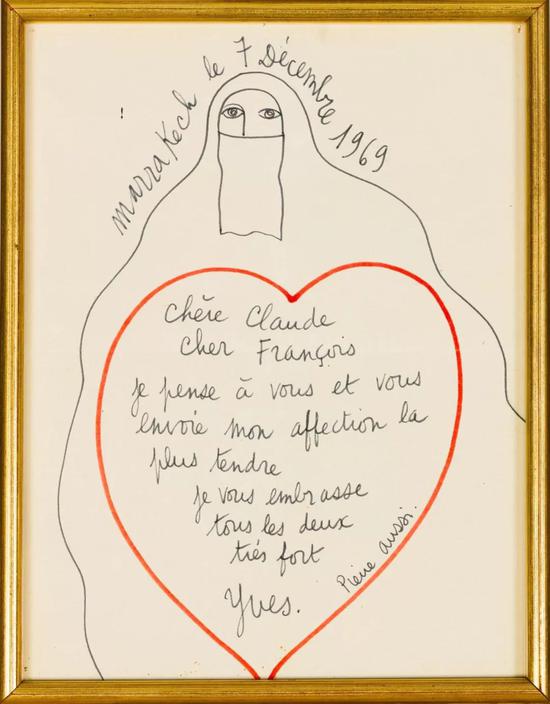 Marrakech le 7 Décembre 1969
Chère Claude
Cher François
je pense à vous et vous
envoie mon affection la
plus tendre
je vous embrasse
tous les deux
très fort
Yves.
Pierre aussi.